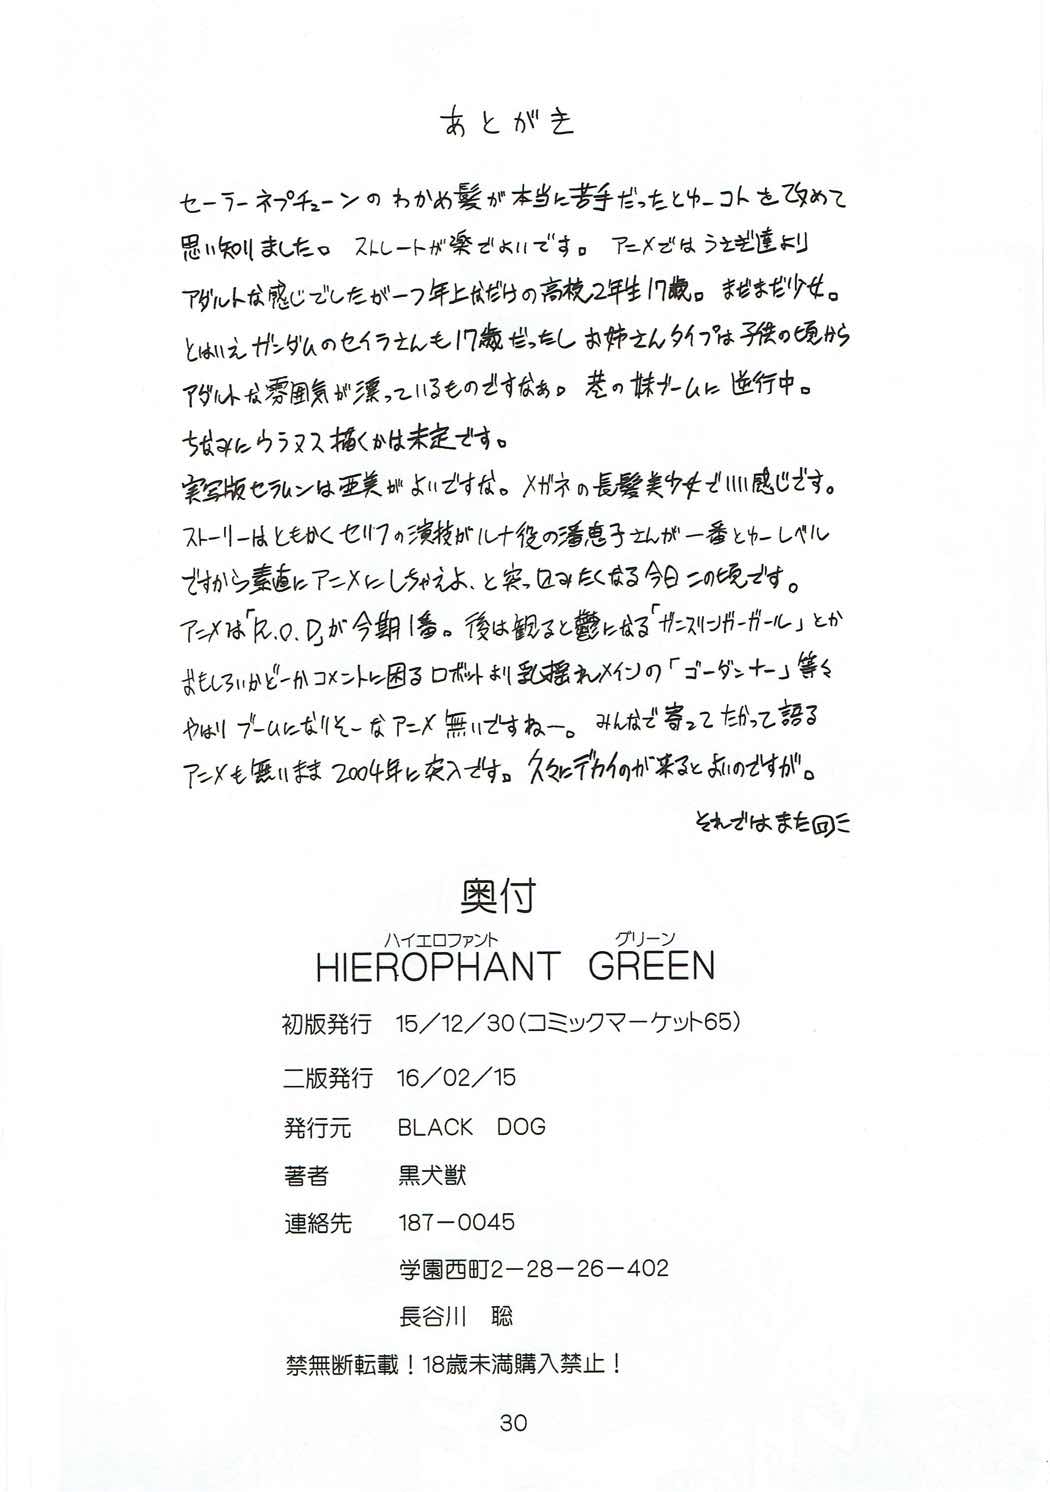 あとがき
セーラーネプチューンのわかめ髪が本当に苦手だったとゆーコトを改めて
思い知りました。 ストレートが楽でよいです。 アニメではうさぎ達より
アダルトな感じでしたが一つ年上なだけの高校2年生17歳。まだまだ少女。
とはいえガンダムのセイラさんも17歳だったしお姉さんタイプは子供の頃から
アダルトな雰囲気が漂っているものですなぁ。 巷の妹ブームに逆行中。
ちなみにウラヌス描くかは未定です。
実写版セラムンは亜美がよいですな。メガネの長髪美少女でいい感じです。
ストーリーはともかくセリフの演技がルナ役の潘恵子さんが一番とゆーレベル
ですから素直にアニメにしちゃえよ、と突っ口みたくなる今日この頃です。
アニメは「R.O.D」が今期1番。後は観ると鬱になる「ガンスリンガーガール」とか
おもしろいかどーかコメントに困るロボットより乳揺れメインの「ゴーダンナー」等々
やはりブームになりそーなアニメ無いですねー。 みんなで寄ってたかって語る
アニメも無いまま2004年に突入です。久々にデカイのが来るとよいのですが。
それではまた回ミ
奥付
ハイエロファント グリーン
HIEROPHANT GREEN
初版発行 15/12/30(コミックマーケット65)
二版発行 16/02/15
発行元 BLACK DOG
著者 黒犬獣
連絡先 187-0045
学園西町2-28-26-402
長谷川 聡
禁無断転載!18歳未満購入禁止!
30